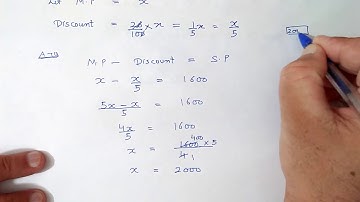 Let M.P = x
Discount = 20/100 × x = 1/5 x = x/5
M.P - Discount = S.P
x - x/5 = 1600
5x - x/5 = 1600
4x/5 = 1600
x = 400 1600 × 5/4 1
x = 2000